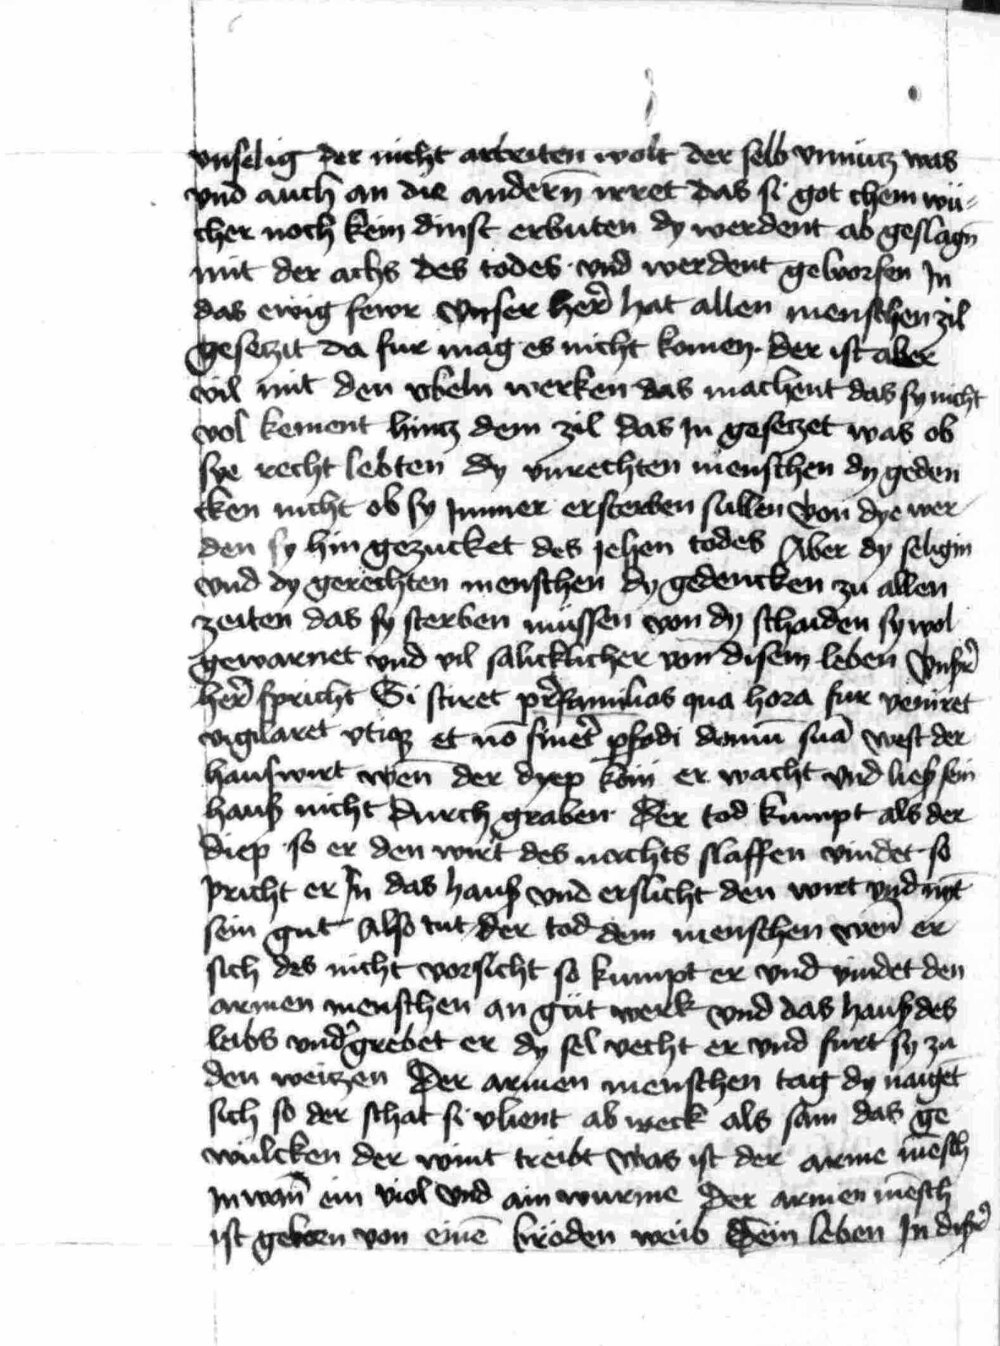 vnselig der nicht arbeiten wolt der selb vnnucz was
vnd auch an die andern̄ irret das si got chein wu⸗
cher noch kein dinst erbuten dy werdent ab geslagn̄
mit der achs des todes · vnd werdent geworfen In
das ewig fewr Vnser her̄ hat allen menschen zil
gesetzit da fur mag es nicht komen · der ist aber
vil mit den vbeln werken das machent das sy nicht
vol kement hincz dem zil das In gesetzet was ob
sye recht lebten dy vnrechten menschen dy geden
cken nicht ob sy Immer ersterben sullen Von dye wer
den sy hin gezucket des jehen todes Aber dy seligin
vnd dy gerechten menschen dy gedencken zu allen
zeiten das sy sterben müssen von dy schaiden sy wol
gewarnet vnd vil salicklicher von disem leben Vnser̄
her̄ spricht Si sciret pr̄familias qua hora fur veniret
vigilaret vtiqꝫ et nō sineꝛ̄ ꝑfodi domū suā west der
hauswirt wen̄ der dyep köm er wacht vnd liesz sein
hausz nicht durch graben · Der tod kumpt als der
diep · so er den wirt des nachts slaffen vindet · so
pricht er In das hausz vnd erslicht den wirt vnd nȳt
sein gut Also tut der tod dem menschen wen̄ er
sich des nicht vorsicht so kumpt er vnd vindet den
armen menschen an güt werk vnd das hausz des
leibs vndgrebet er dy sel vecht er vnd furt sy zu
den weiczen Der armen menschen tag dy naiget
sich so der schat si vlient ab weck als sam das ge
wülcken der wint treibt Was ist der arme mēsch
In wan̄ ein viol vnd ain wurme Der armen mēsch
ist geborn von einē kröden weib Sein leben In diser̄